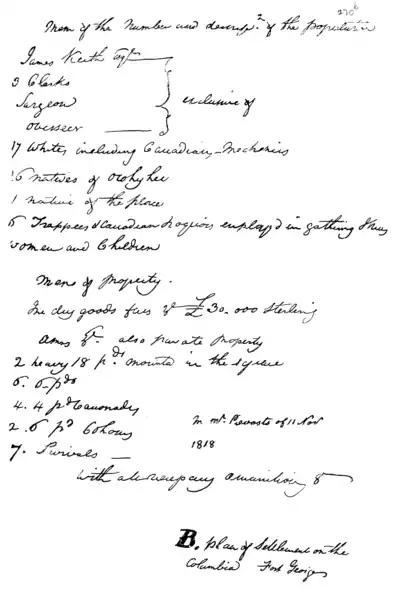 270 b
Mem of the Number and descrip.n of the population
James Keith Esqr
3 Clerks
Surgeon
overseer
exclusive of
17 Whites including Canadians, Mechanics
16 natives of Owhyhee
1 native of the place
6 Trappers & Canadian Iroquois employ'd in gathering
women and Children
Mem of Property.
In dry goods furs &c £30.000 Sterling
Arms &c. also private property
2 heavy 18 pds mounted in the square
6. 6-pds
4. 4 pd Cannonades
2. 6 pd Cohorns
7. Swivels
with all necessary ammunition &
In Mr. Prevosts of 11 Nov
1818
B. plan of Settlement on the
Columbia Fort George